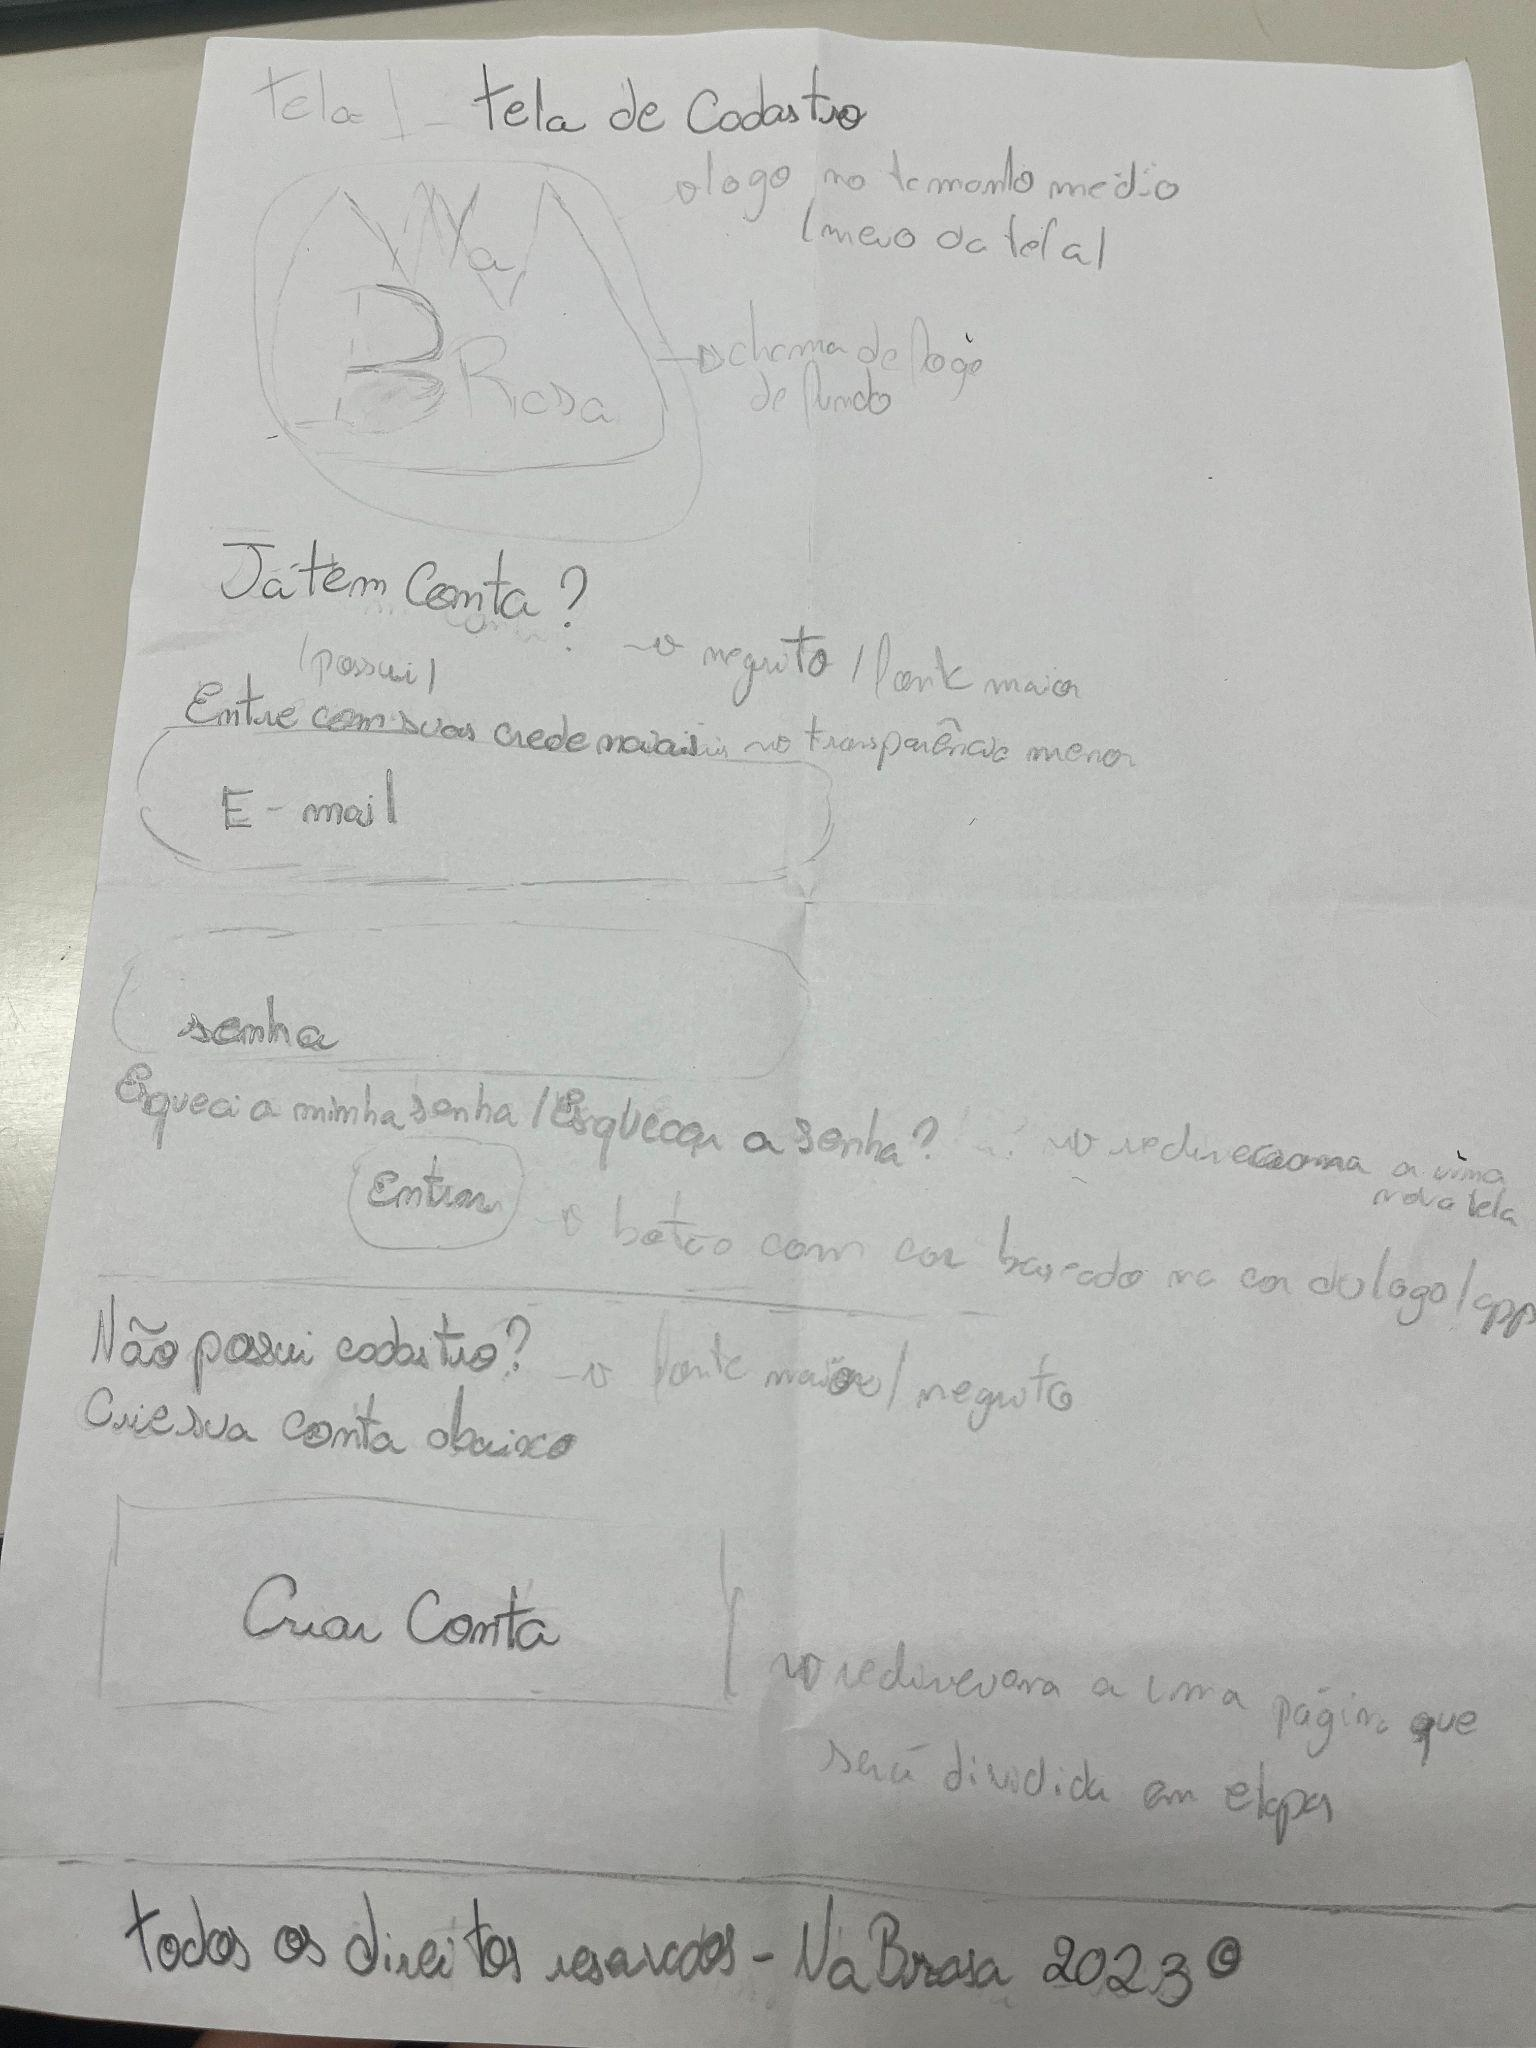 tela 1 - tela de Cadastro
logo no tamanho médio
(meio da tela)
Na
BRasa
chama de fogo
de fundo
Já tem Conta?
(possui)
negrito / fonte maior
Entre com suas credenciais
transparência menor
E-mail
senha
Esqueci a minha senha / Esqueceu a senha?
redireciona a uma
nova tela
Entrar
botão com cor baseado na cor do logo/app
Não possui cadastro?
fonte maior / negrito
Crie sua conta abaixo
Criar Conta
redirecionara a uma página que
será dividida em etapas
todos os direitos reservados - Na Brasa 2023 ©